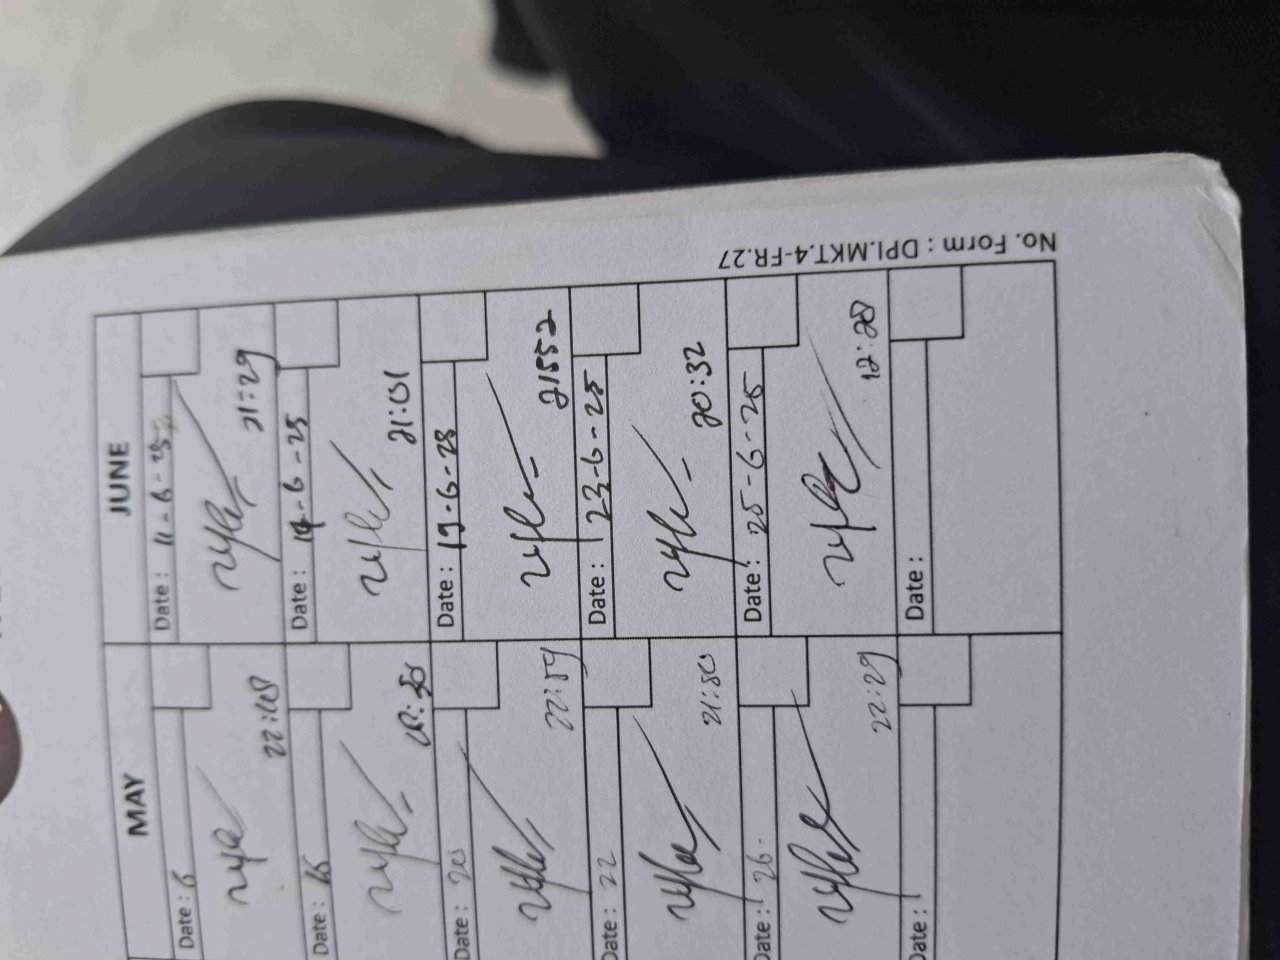 MAY
Date : 6
22:48
Date : 15
Date : 20
22:59
Date : 22
21:50
Date : 26.
22:29
Date :
JUNE
Date : 11-6-25
21:29
Date : 14-6-25
21:01
Date : 19-6-25
21552
Date : 23-6-25
20:32
Date : 25-6-25
12:28
Date :
No. Form : DPI.MKT.4-FR.27